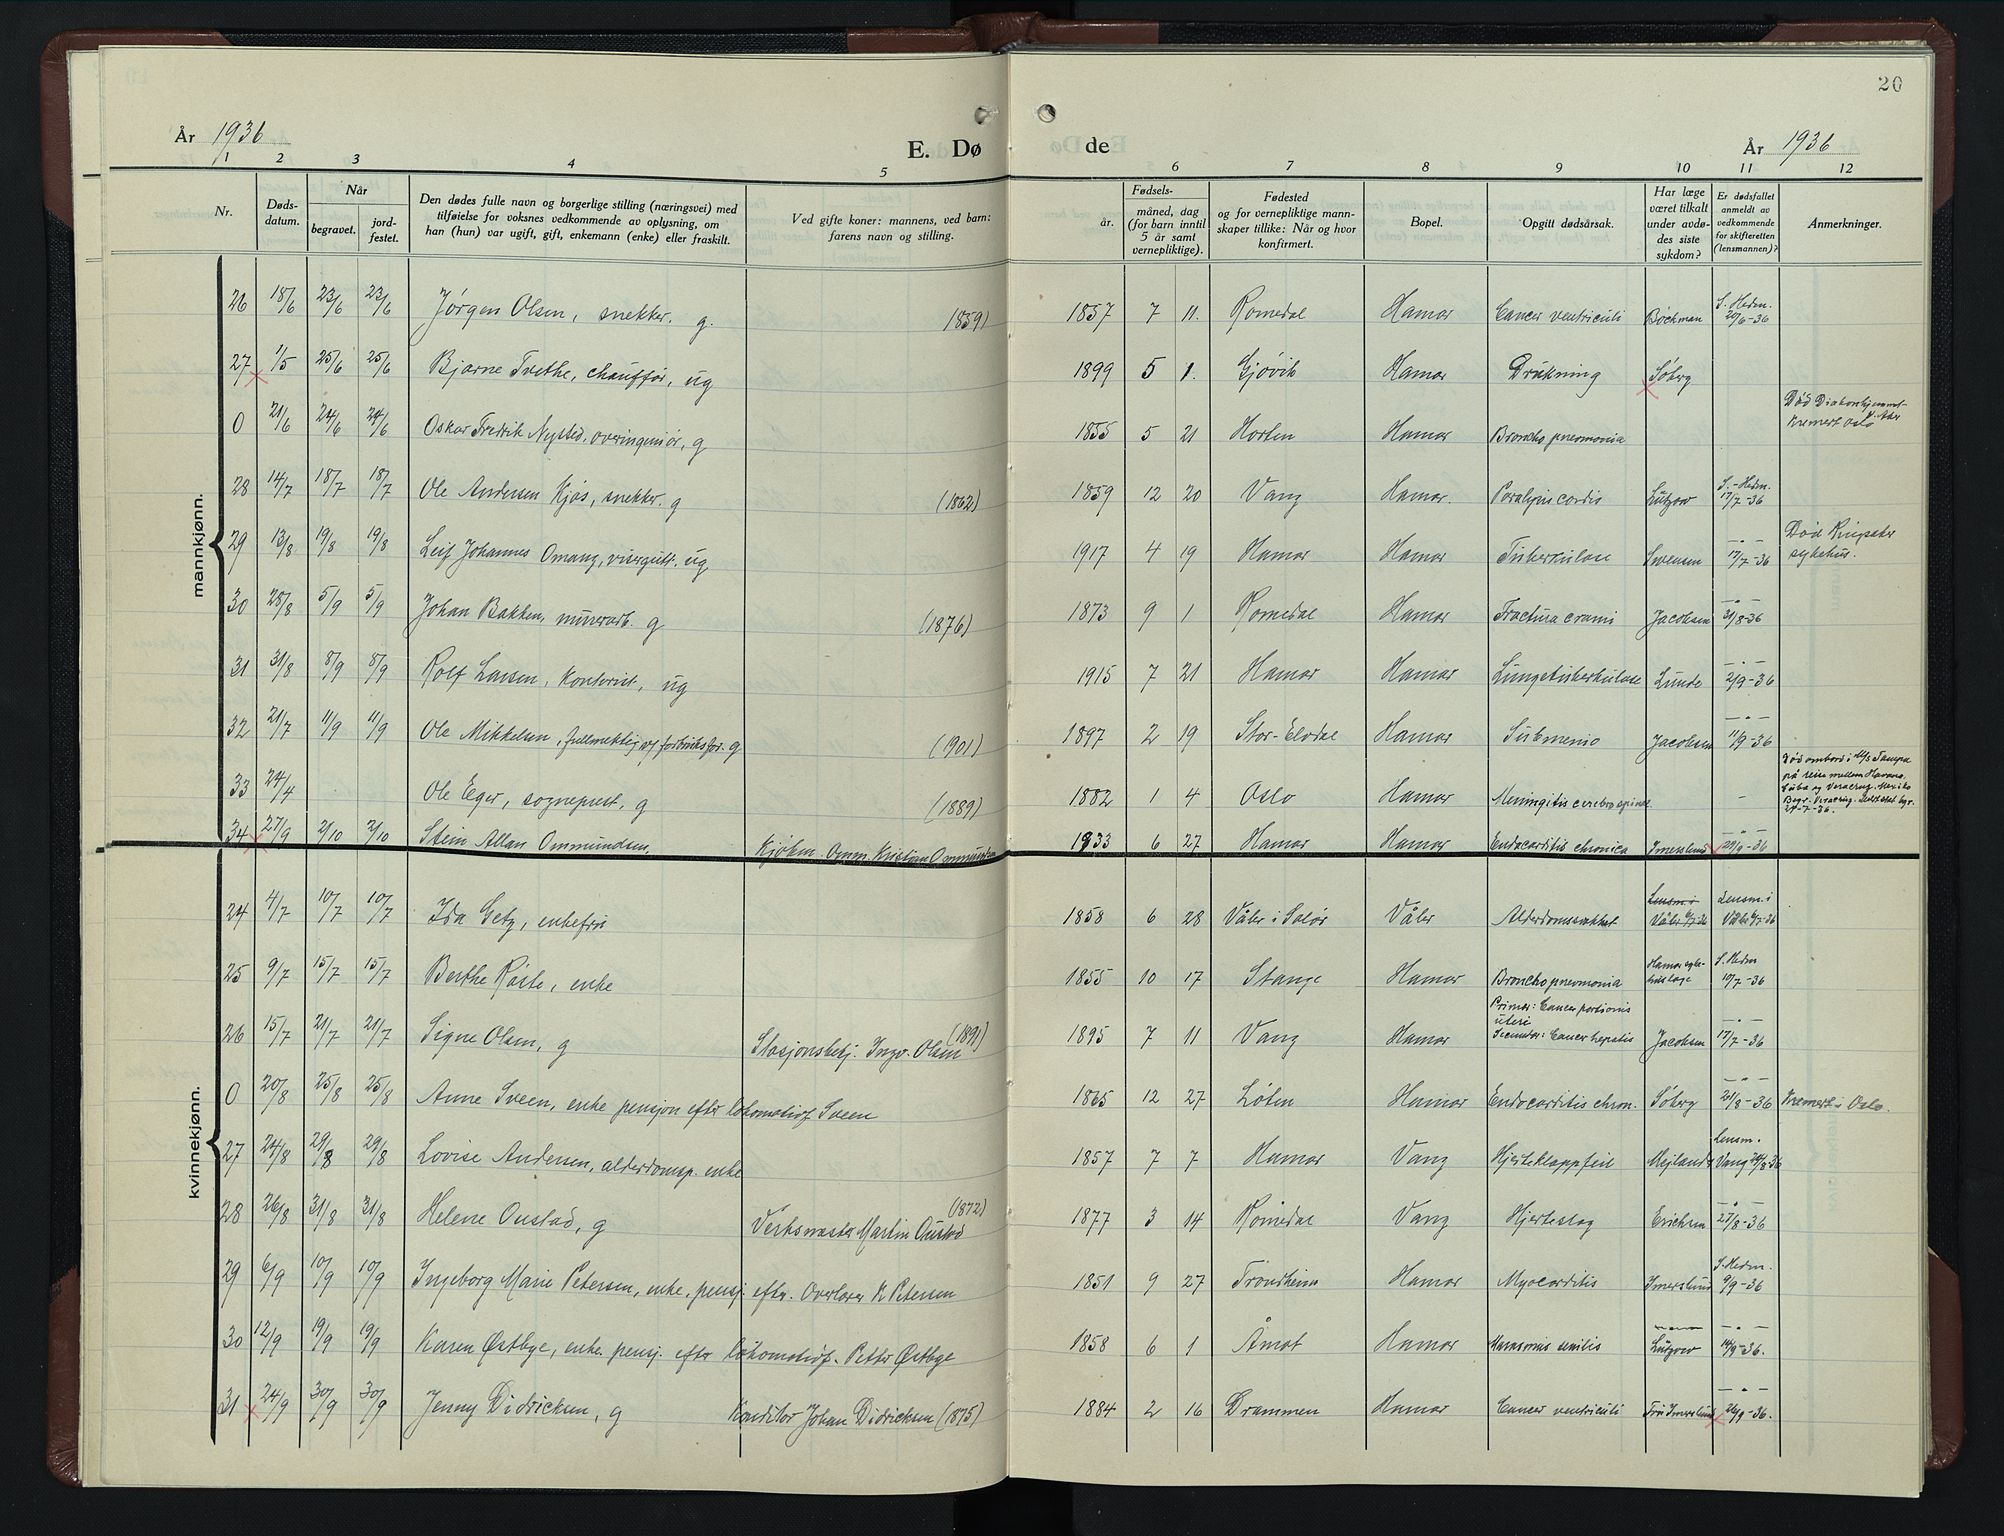 År 1936
E. Dø
de
År 1936
20
1 2 3 4 5 6 7 8 9 10 11 12
Nr.
Dødsdatum.
Når
begravet.
jordfestet.
Den dødes fulle navn og borgerlige stilling (næringsvei) med
tilføielse for voksnes vedkommende av oplysning, om
han (hun) var ugift, gift, enkemann (enke) eller fraskilt.
Ved gifte koner: mannens, ved barn:
farens navn og stilling.
Fødsels-
år.
måned, dag
(for barn inntil
5 år samt
vernepliktige).
Fødested
og for vernepliktige mann-
skaper tillike: Når og hvor
konfirmert.
Bopel.
Opgitt dødsårsak.
Har læge
været tilkalt
under avdø-
des siste
sykdom?
Er dødsfallet
anmeldt av
vedkommende
for skifteretten
(lensmannen)?
Anmerkninger.
mannkjønn.
26 18/6 23/6 23/6 Jørgen Olsen, snekker. g. (1859) 1857 7 11. Romedal Hamar Cancer ventriculi Bøckman S. Hedm. 20/6-36
27 1/5 25/6 25/6 Bjarne Tvethe, chauffør, ug 1899 5 1. Gjøvik Hamar Drukning Søberg
0 21/6 24/6 24/6 Oskar Fredrik Nysted, overingeniør, g 1855 5 21 Horten Hamar Broncho pneumonia Død Diakonhjemmet Kremert Oslo
28 14/7 18/7 18/7 Ole Andersen Kjos, snekker. g (1862) 1859 12 20 Vang Hamar. Paralysis cordis Lützow S.-Hedm. 17/7-36
29 13/8 19/8 19/8 Leif Johannes Omang, visergutt. ug 1917 4 19 Hamar Hamar Tuberkulose Svensen -"- 17/7-36 Død sykehus.
30 28/8 5/9 5/9 Johan Bakken, murerarb. g (1876) 1873 9 1 Romedal Hamar Fractura cranii Jacobsen -"- 31/8-36
31 31/8 8/9 8/9 Rolf Larsen, Kontorist, ug 1915 7 21 Hamar Hamar Lungetuberkulose Lunde -"- 2/9-36
32 21/7 11/9 11/9 Ole Mikkelsen, fullmektig v/ forbruksfor. g (1901) 1897 2 19 Stor-Elvdal Hamar Jacobsen -"- 11/9-36
33 24/4 Ole Eger, sogneprest. g (1889) 1882 1 4 Oslo Hamar Meningitis cerebrospinal. - Død ombord i M/S Tampa på reise mellem Havana, Cuba og Veracruz, Mexiko Begr. Veracruz.
34 27/9 2/10 2/10 Stein Allan Ommundsen, Kjøbm. Omm. Kristian Ommundsen 1933 6 27 Hamar Hamar Endocarditis chronica Imerslund -"- 29/9-36
kvinnekjønn.
24 4/7 10/7 10/7 Ida Getz, enkefru 1858 6 28 Våler i Solør Våler Alderdomssvakhet Lensm. i Våler 6/7-36 Lensm. i Våler 6/7-36
25 9/7 15/7 15/7 Berthe Røste, enke 1855 10 17 Stange Hamar Bronchopneumonia Hamar syke-huslæge S. Hedm 10/7-36
26 15/7 21/7 21/7 Signe Olsen, g Stasjonsbetj. Ingv. Olsen (1891) 1895 7 11 Vang Hamar Primær: Cancer portionis uteri Secundær: Cancer hepatis Jacobsen -"- 17/7-36
0 20/8 25/8 25/8 Anne Sveen, enke pensjon efter lokomotivf. Sveen 1865 12 27 Løten Hamar Endocarditis chron. Søberg -"- 21/8-36 Kremert i Oslo.
27 24/8 29/8 29/8 Lovise Andersen, alderdomsp. enke 1857 7 7 Hamar Vang Hjerteklappfeil Mejlands Lensm. Vang 24/8-36
28 26/8 31/8 31/8 Helene Onstad, g Verksmester Martin Onstad (1872) 1877 3 14 Romedal Vang Hjerteslag Erichsen -"- 27/8-36
29 6/9 10/9 10/9 Ingeborg Marie Petersen, enke, pensj. eftr. Overlærer K Petersen 1851 9 27 Trondheim Hamar Myocarditis Imerslund S. Hedm. 9/9-36
30 12/9 19/9 19/9 Karen Østbye, enke. pensj. efter lokomotivf. Petter Østbye 1858 6 1 Åmot Hamar Marasmus senilis Lützow -"- 14/9-36.
31 24/9 30/9 30/9 Jenny Didricksen, g Konditor Johan Didricksen (1875) 1884 2 16 Drammen Hamar Cancer ventriculi Fru Imerslund -"- 26/9-36.